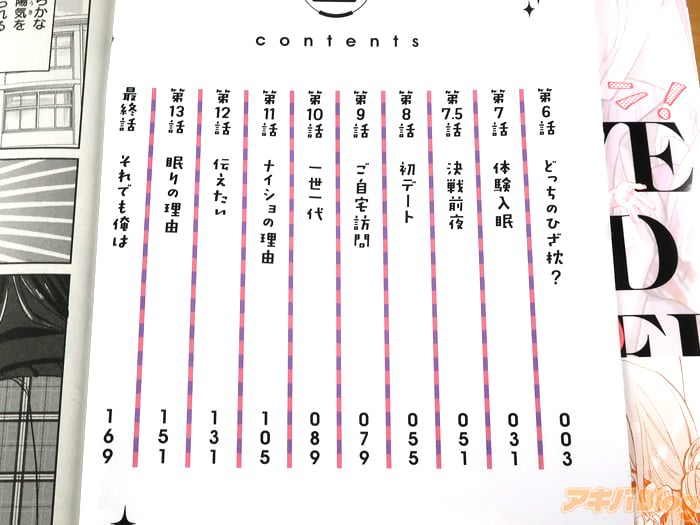 contents
第6話 どっちのひざ枕? 003
第7話 体験入眠 031
第7.5話 決戦前夜 051
第8話 初デート 055
第9話 ご自宅訪問 079
第10話 一世一代 089
第11話 ナイショの理由 105
第12話 伝えたい 131
第13話 眠りの理由 151
最終話 それでも俺は 169
らかな
陽気を
られる
ン!
E
D
アキバBlog